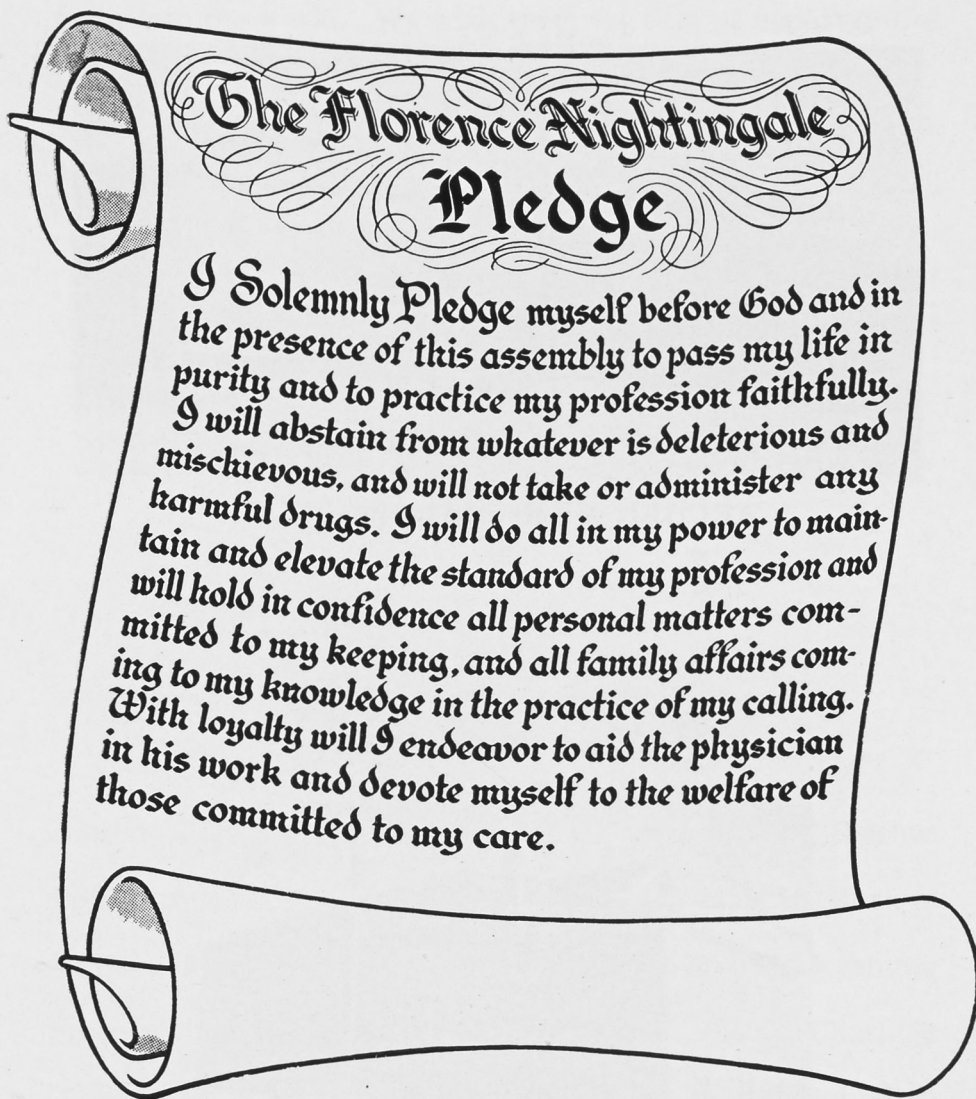 The Florence Nightingale
Pledge
I Solemnly Pledge myself before God and in
the presence of this assembly to pass my life in
purity and to practice my profession faithfully.
I will abstain from whatever is deleterious and
mischievous, and will not take or administer any
harmful drugs. I will do all in my power to main-
tain and elevate the standard of my profession and
will hold in confidence all personal matters com-
mitted to my keeping, and all family affairs com-
ing to my knowledge in the practice of my calling.
With loyalty will I endeavor to aid the physician
in his work and devote myself to the welfare of
those committed to my care.